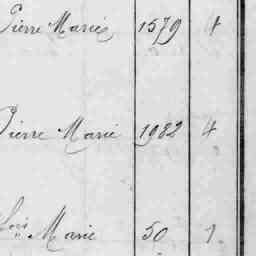 Pierre Marie 1579 4
Pierre Marie 1982 4
Marie 50 1